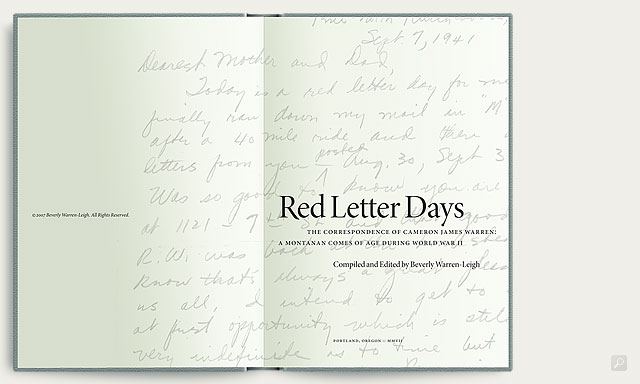 Sept. 7, 1941
Dearest Mother and Dad,
Today is a red letter day for
finally ran down my mail in "M"
after a 40 mile ride and there
letters from you posted Aug. 30, Sept 3
Was so good to know you are
at 1121 - 7th St. and good
R. Wi. was back at
know that's always a great
us all, I intend to get to
at first opportunity which is still
very indefinite as to time but
© 2007 Beverly Warren-Leigh. All Rights Reserved.
Red Letter Days
THE CORRESPONDENCE OF CAMERON JAMES WARREN:
A MONTANAN COMES OF AGE DURING WORLD WAR II
Compiled and Edited by Beverly Warren-Leigh
PORTLAND, OREGON – MMVII